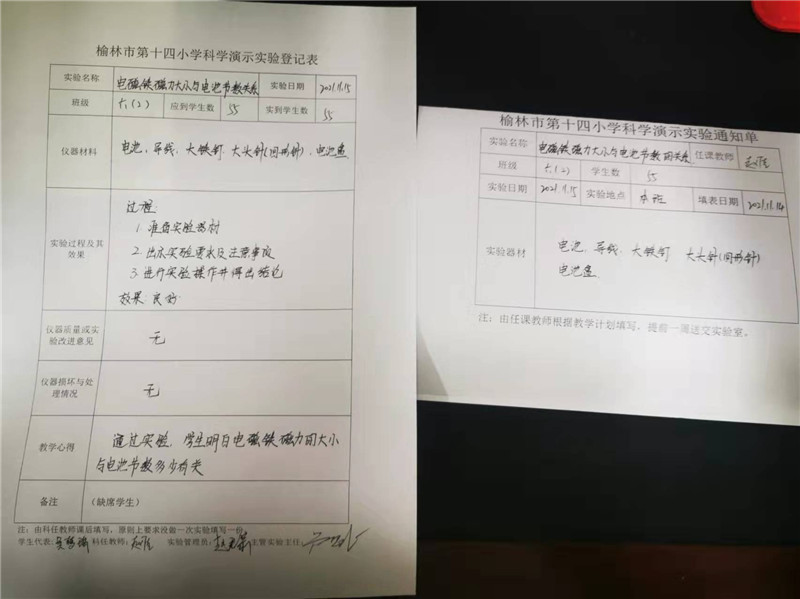 榆林市第十四小学科学演示实验登记表
实验名称 电磁铁磁力大小与电池节数关系 实验日期 2021.11.15
班级 六(2) 应到学生数 55 实到学生数 55
仪器材料 电池、导线、大铁钉 大头针(回形针)、电池盒
过程:
1. 准备实验器材
实验过程及其效果
2. 出示实验要求及注意事项
3. 进行实验操作并得出结论
效果 良好
仪器质量或实验改进意见 无
仪器损坏与处理情况 无
教学心得 通过实验,学生明白电磁铁磁力的大小
与电池节数多少有关
备注 (缺席学生)
注:由科任教师课后填写,原则上要求没做一次实验填写一份
学生代表: 科任教师: 实验管理员: 主管实验主任:
榆林市第十四小学科学演示实验通知单
实验名称 电磁铁磁力大小与电池节数的关系 任课教师
班级 六(2) 学生数 55
实验日期 2021.11.15 实验地点 本班 填表日期 2021.11.14
实验器材 电池、导线、大铁钉 大头针(回形针)
电池盒
注:由任课教师根据教学计划填写,提前一周送交实验室。